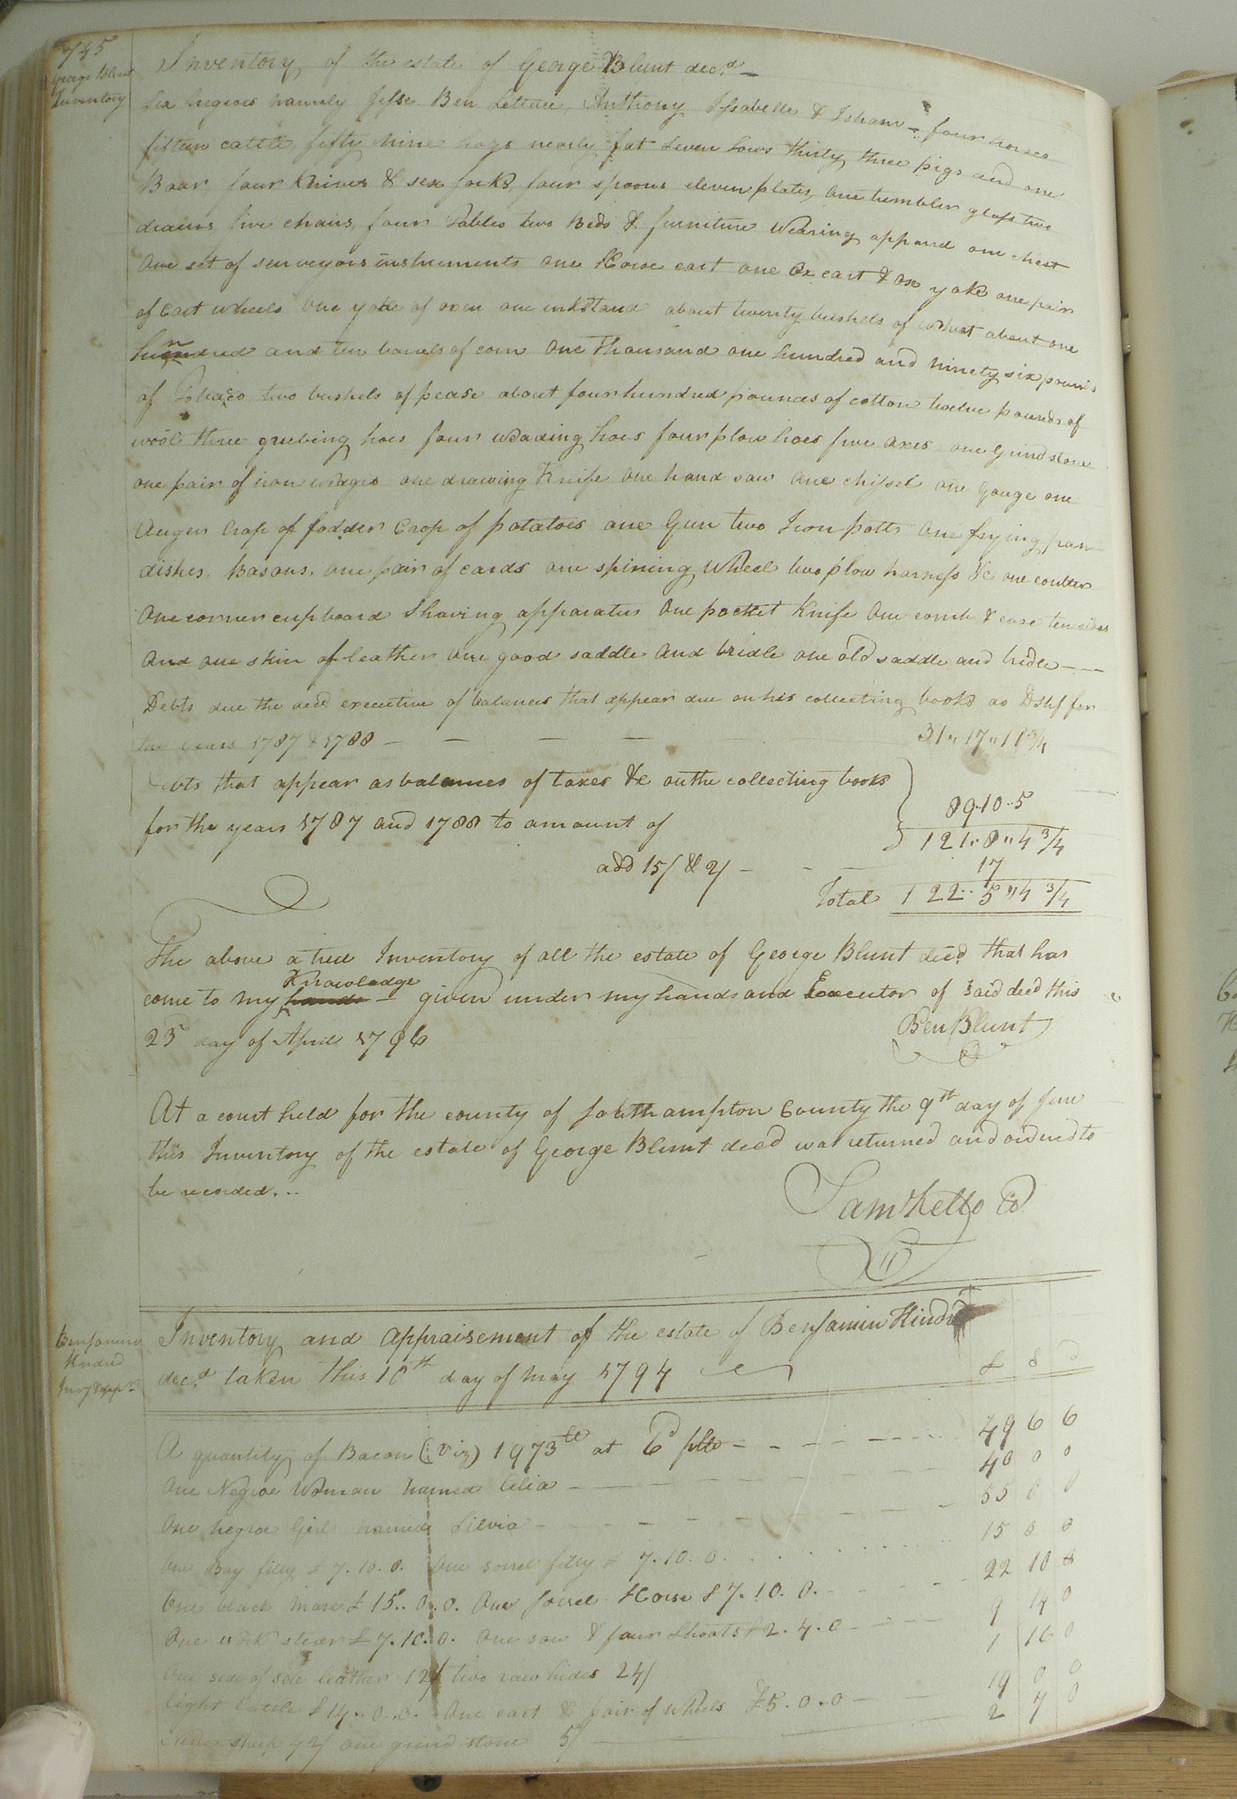 745
George Blunt
Inventory
Inventory of the estate of George Blunt decd. —
Six negroes namely Jesse Ben Lettuce, Anthony Issabelle & Isham – four horses
fifteen cattle fifty nine hogs nearly fat seven sows thirty three pigs and one
Boar four Knives & six forks, four spoons eleven plates, one tumbler glass two
five chairs, four Tables two Beds & furniture Wearing apparel one chest
One set of surveyors instruments one Horse cart one Ox cart & ox yoke one pair
of Cart wheels One yoke of oxen one inkstand about twenty bushels of wheat about one
hundred and ten barrels of corn One thousand one hundred and ninety six pounds
of Tobacco two bushels of pease about four hundred pounds of cotton twelve pounds of
wool three grubing hoes four weading hoes four plow hoes five axes one Grindstone
one pair of iron wedges one drawing Knife One hand saw One chissel one Gouge one
Auger Crop of fodder Crop of potatoes one Gun two Iron potts One frying pan
dishes, Basons, one pair of cards one spining Wheel two plow harness &c one coulter
One corner cupboard Shaving apparatus One pocket Knife One comb & case ten sides
And one skin of leather One good saddle And bridle one old saddle and bridle — —
Debts due the decd executive of balances that appear due on his collecting books as Dshf for
the years 1787 & 1788 – – – – 31" 17" 11 3/4
Debts that appear as balances of taxes &c on the collecting books
for the years 1787 and 1788 to amount of 89..10..5
121" 8" 4 3/4
add 15/ & 2/ – – – 17
Total 122.. 5" 4 3/4
The above a true Inventory of all the estate of George Blunt decd. that has
come to my hands Knowledge – given under my hands and Executor of said decd this
25 day of April 1796 Ben Blunt
At a court held for the county of Southampton County the 9th day of June
this Inventory of the estate of George Blunt decd was returned and ordered to
be recorded...
Sam Kello Cl
Benjamin
Kindred
Inv & appt
Inventory and Appraisement of the estate of Benjamin Kindred
decd. taken this 10th day of may 1794 £ S D
A quantity of Bacon (Viz) 1973 lb at 6d pr lb – – – 49 6 6
One Negroe Woman named Celia – – – 40 0 0
One negroe Girl named Silvia – – – 55 0 0
One Bay filly £ 7.10.0. One sorrel filly £ 7.10.0. 15 0 0
One black Mare £ 15..0.0. One sorrel Horse £ 7.10.0. 22 10 0
One work steer £ 7.10.0. One sow & four Shoats £ 2.4.0 – 9 14 0
One side of sole leather 12/ two raw hides 24/ 1 16 0
Eight Cattle £ 14..0.0. One cart & pair of wheels £5.0.0 – 19 0 0
sheep 42/ one grind stone 5/ 2 7 0